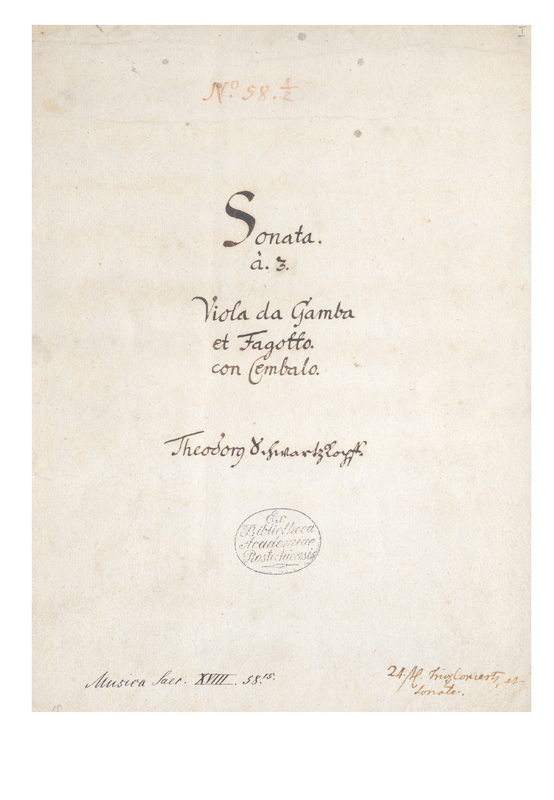 I
No. 58. 1/2
Sonata.
à. 3.
Viola da Gamba
et Fagotto.
con Cembalo.
Theodorg Schwartzkopff.
Ex
Bibliotheca
Academiae
Rostochiensis
Musica Saec. XVIII. 58.15.
Sonate.
15